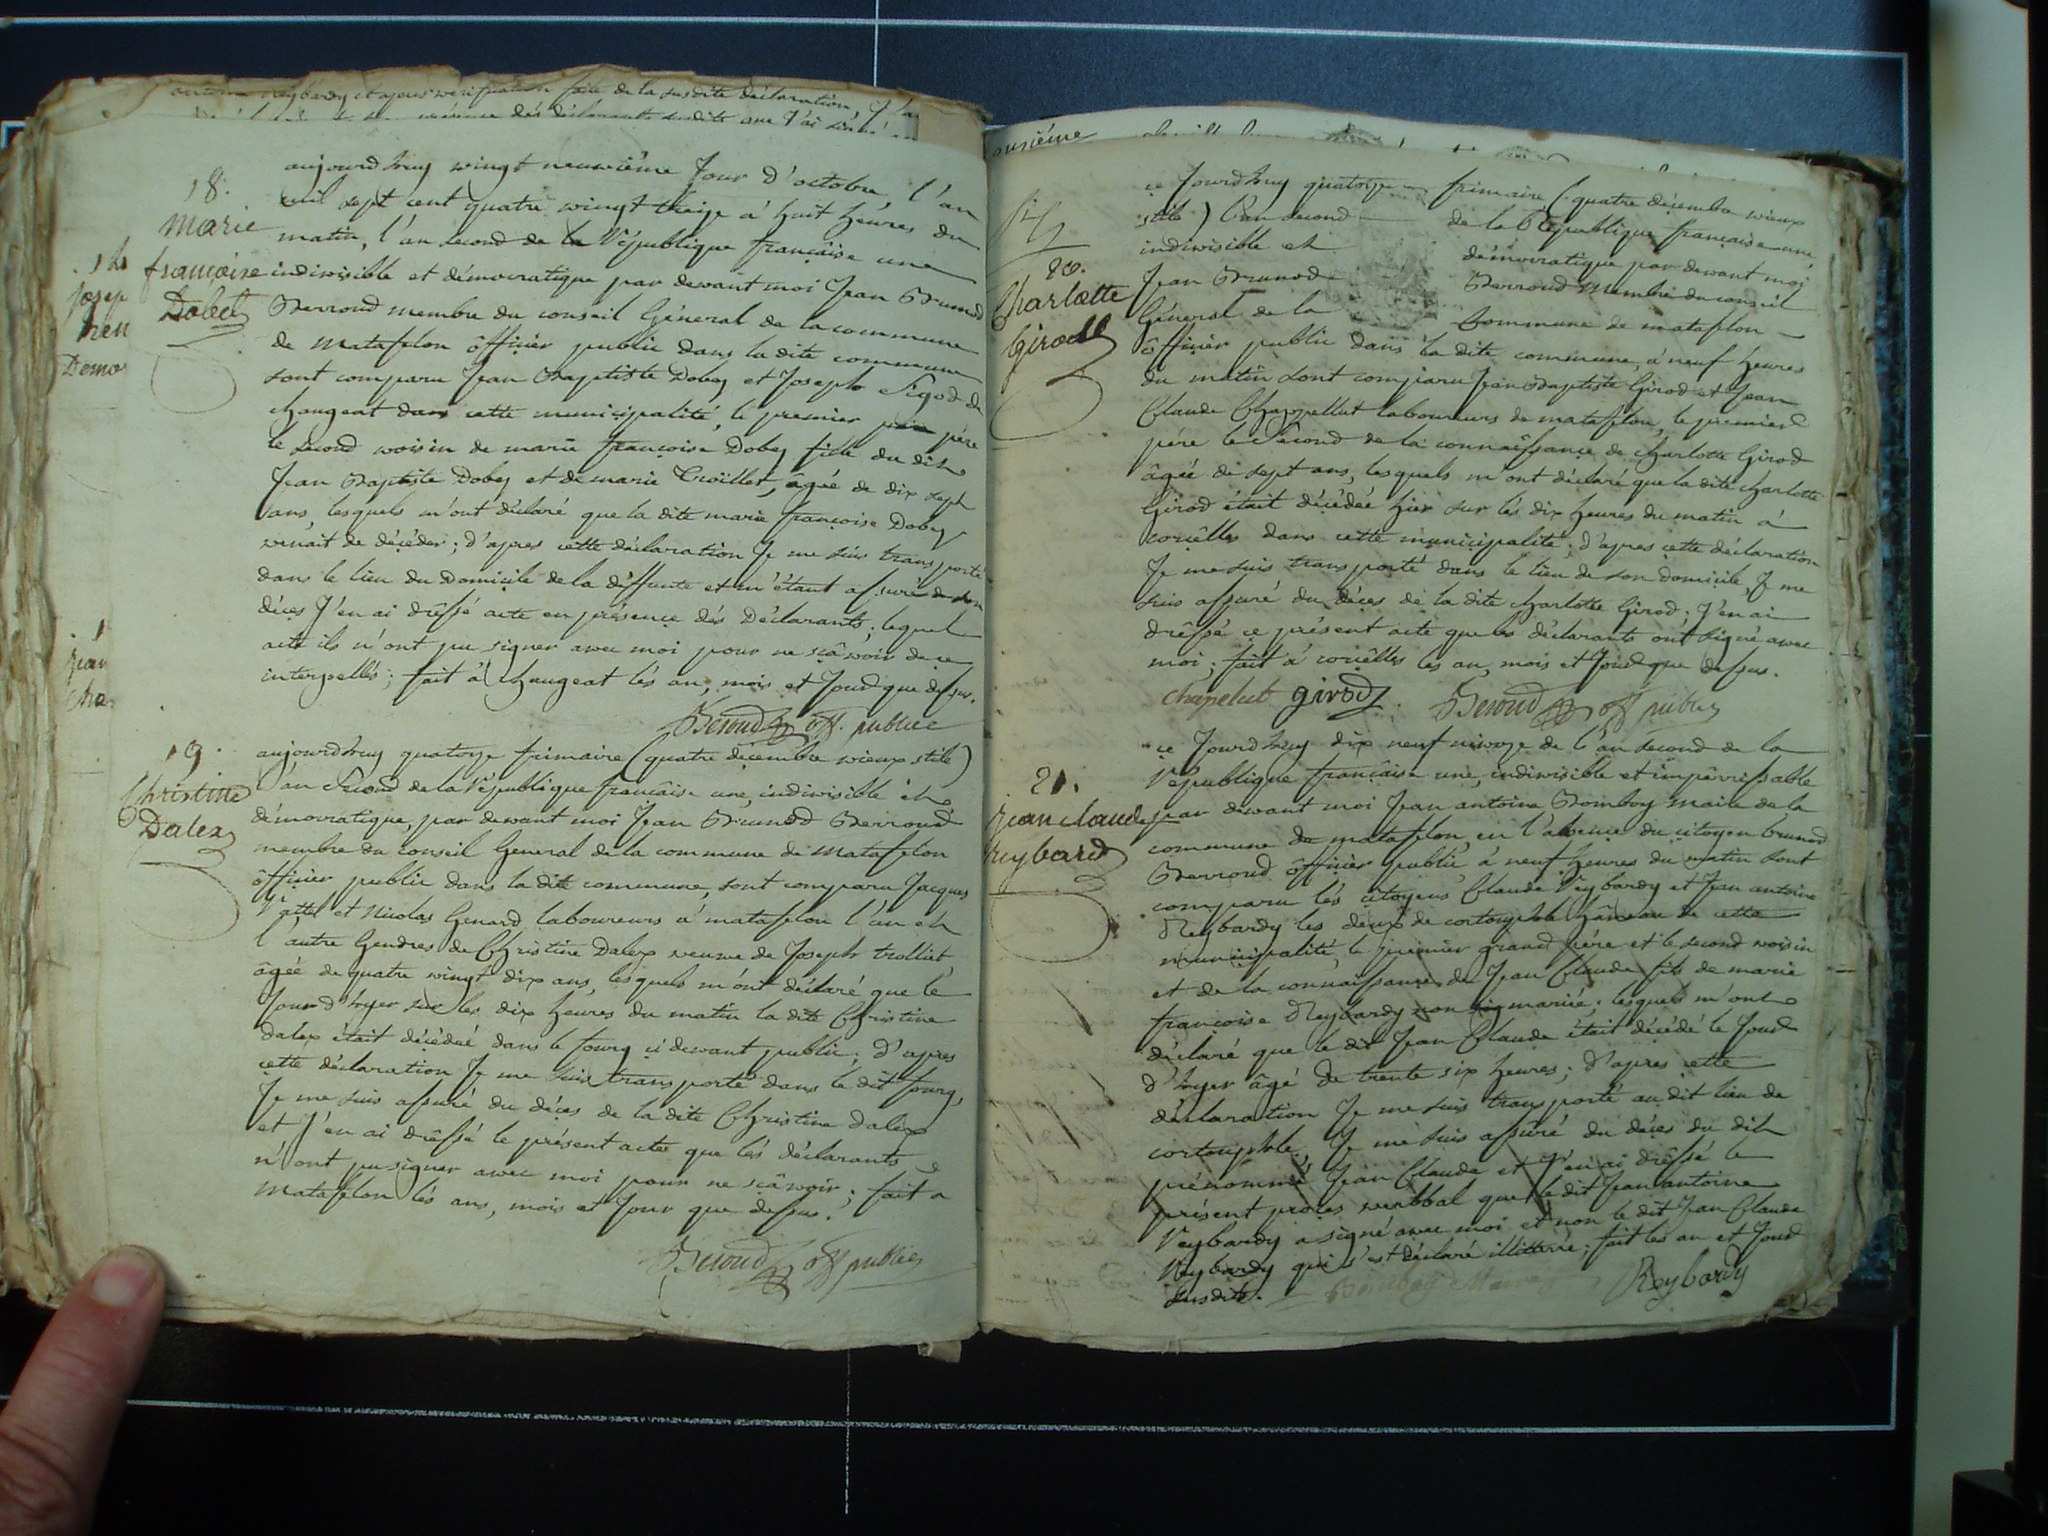 antoine Reybardy et apres verifîcation faite de la susdite déclaration, J'
présence dés déclarants susdits que J'ai signé
18.
marie
françoise
Dobey
aujourd'huy vingt neuviéme Jour D'octobre, l'an
mil sept cent quatre vingt treize à huit heures du
matin, l'an second de la République française une
indivisible et démocratique par devant moi Jean Brunod
Berroud membre du conseil Général de la commune
de Matafelon ôfficier public dans la dite commune
sont comparu Jean Baptiste Dobey et Joseph Sigod de
Chaugeat dans cette municipalité, le premier père
le second voisin de marie françoise Dobey fille du dit
Jean Baptiste Dobey et de marie Croîllet, âgée de dix sept
ans, lesquels m'ont déclaré que la dite marie françoise Dobey
venait de décéder; d'apres cette déclaration Je me suis transporté
dans le lieu du Domicile de la déffunte et m'étant assuré de son
déces J'en ai drêssé acte en présence dés Déclarants; lequel
acte ils n'ont pu signer avec moi pour ne sçâvoir de ce
interpellés; fait à Chaugeat lés an, mois et Jour que dessus.
Beroud off. public
19.
Christine
Dalex
aujourd'huy quatorze frimaire (quatre décembre vieux stile)
l'an Second de la République française une, indivisible et
démocratique, par devant moi Jean Brunod Berroud
membre du conseil Général de la commune de Matafelon
ôfficier public dans la dite commune, sont comparu Jacques
Vattel et Nicolas Genard laboureurs a matafelon l'un et
l'autre Gendres de Christine Dalex veuve de Joseph trolliet
âgée de quatre vingt dix ans, lesquels m'ont déclaré que le
Jour d'hyer sur les dix heures du matin la dite Christine
Dalex était décédeé dans le fourg ci devant public; d'apres
cette déclaration Je me suis transporté dans le dit fourg,
Je me suis assuré du déces de la dite Christine Dalex
et J'en ai drêssé le présent acte que lés déclarants
n'ont pu signer avec moi pour ne sçâvoir; fait a
Matafelon lés ans, mois et Jour que dessus.
Beroud off public
20.
Charlotte
Girod
ce Jourd'huy quatorze frimaire, (quatre décembre vieux
stile) l'an second de la République française une,
indivisible et démocratique par devant moi
Jean Brunod Berroud Membre du conseil
Général de la Commune de matafelon
ôfficier public dans la dite commune, a neuf heures
du matin sont comparu Jean Baptiste Girod et Jean
Claude Chappellut laboureurs de matafelon, le premier
pére le Second de la connâissançe de Charlotte Girod
âgée de sept ans, lesquels m'ont déclaré que la dite charlotte
Girod était décédeé hier sur lés dix heures du matin a
corcêlles dans cette municipalité; d'apres cette déclaration
Je me suis transporté dans le lieu de son domicile, Je me
suis assuré du déces de la dite charlotte Girod; J'en ai
drêssé ce présent acte que lés déclarants ont signé avec
moi; fait a corcêlles lés an, mois et Jour que dessus.
chapelut girod Beroud off public
21.
jean claude
reybardy
ce Jourd'huy dix neuf nivoze de l'an second de la
République française une, indivisible et impérissable
par devant moi Jean antoine Bomboy maire de la
commune de matafelon, en l'absence du citoyen brunod
Berroud ôfficier public à neuf heures du matin sont
comparu lés citoyens Claude Reybardy et Jean antoine
Reybardy les deux de cortouphle hâmeau de cette
municipalité, le premier grand pére et le second voisin
et de la connaissançe de Jean Claude fils de marie
françoise Reybardy non mariée; lesquels m'ont
déclaré que le dit Jean Claude était décédé le Jour
d'hyer âgé de trente six heures; d'apres cette
déclaration Je me suis transporté au dit lieu de
cortouphle, Je me suis assuré du déces du dit
prénommé Jean Claude et J'en ai drêssé le
présent procès verbbal que le dit Jean antoine
Reybardy a signé avec moi et non le dit Jean Claude
Reybardy qui s'est déclaré illitterré; fait lés an et Jour
susdits. Bomboy Maire Reybardy